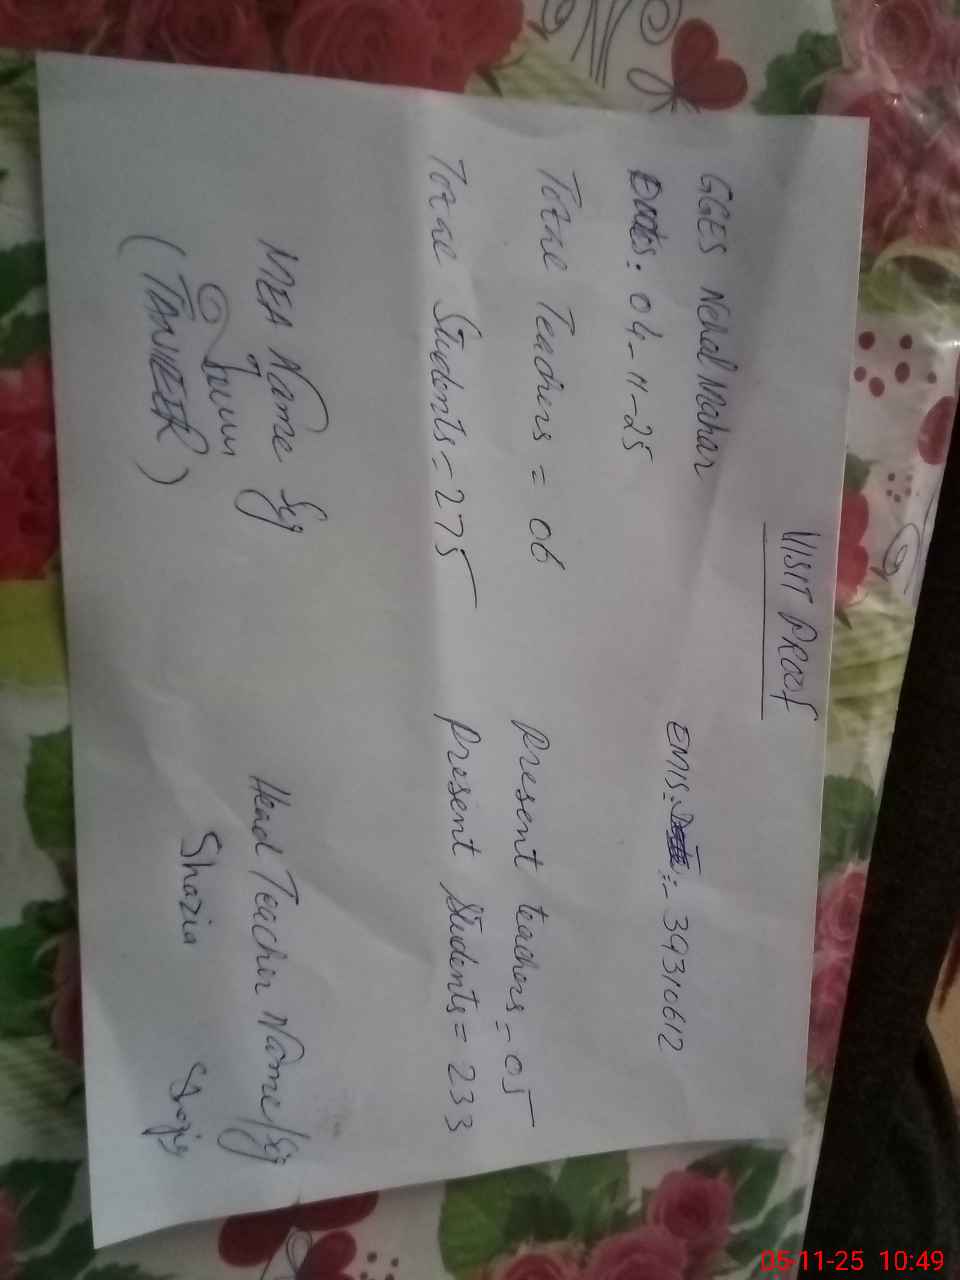 VISIT PROOF
GGES Nehal Mahar EMIS:- 39310612
Dates: 04-11-25
Totae Teachers = 06 Present teachers = 05
Totae Students = 275 Present Students = 233
MEA Name Sig Head Teacher Name/Sig
Shazia
(TANVEER)
05-11-25 10:49